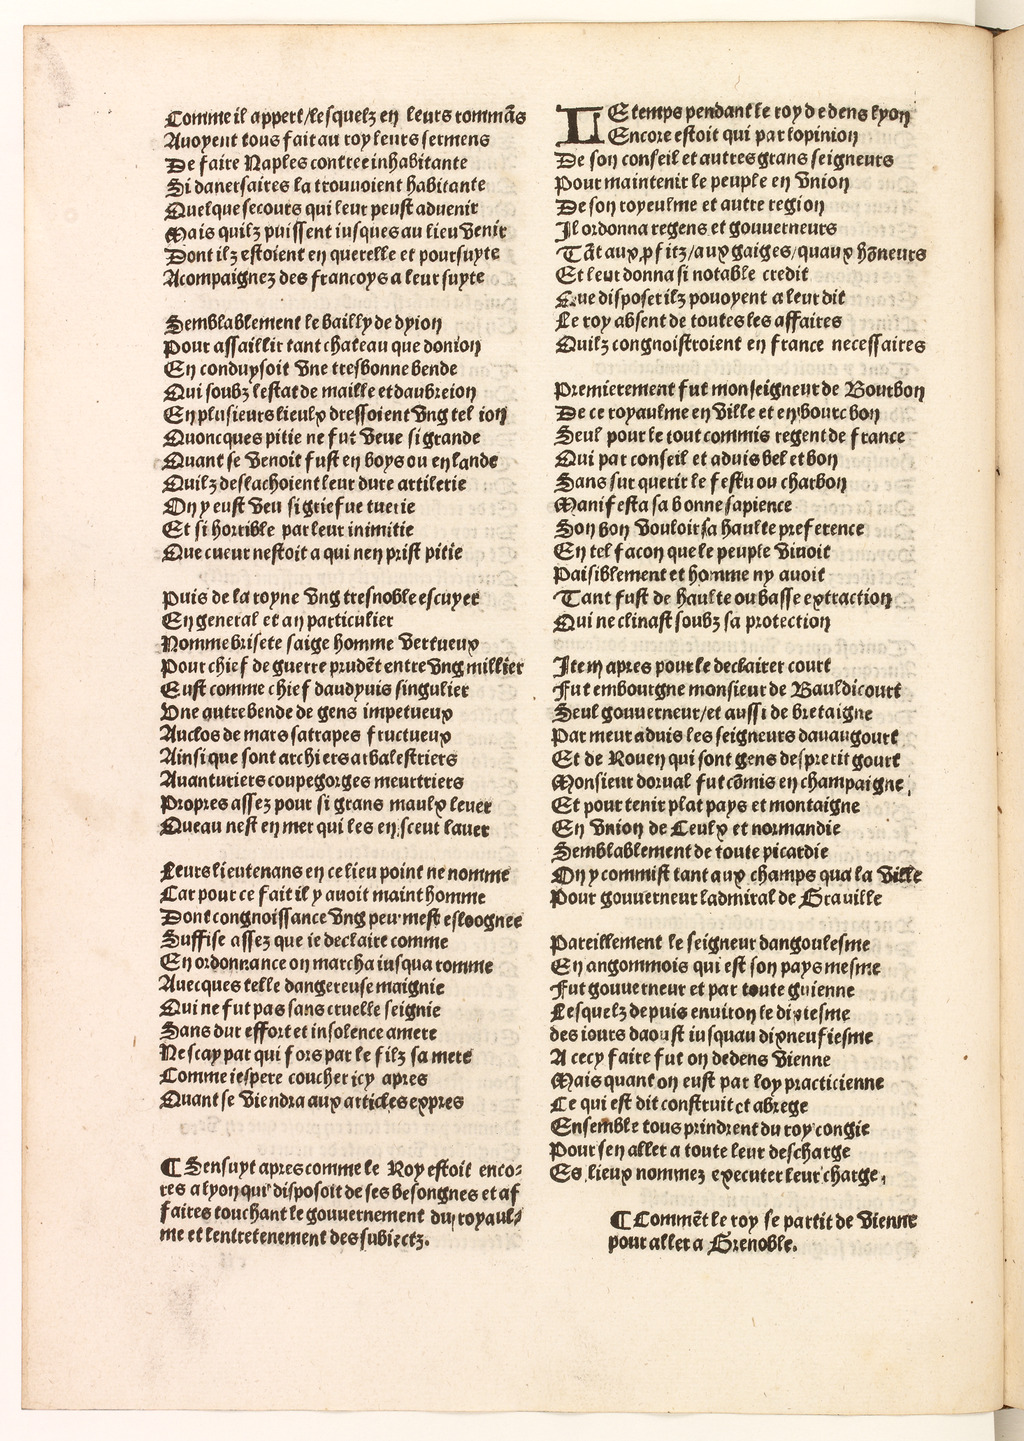 Comme il appert/lesquelz en leurs rommãs
Auoyent tous fait au roy leurs sermens
De faire Naples contree inhabitante
Si daneersaires la trouuoient habitante
Quelque secours qui leur peust aduenir
Mais quilz puissent iusques au lieu venir
Dont ilz estoient en querelle et poursuyte
Acompaignez des francoys a leur suyte
Semblablement le bailly de dyion
Pour assaillir tant chateau que donion
En conduysoit vne tresbonne bende
Qui soubz lestat de maille et daubreion
En plusieurs lieulx dressoient vng tel ion
Quoncques pitie ne fut veue si grande
Quant se venoit fust en boys ou en lande
Quilz deslachoient leur dure artilerie
On y eust veu si griefue tuerie
Et si horrible par leur inimitie
Que cueur nestoit a qui nen prist pitie
Puis de la royne vng tresnoble escuyer
En general et an particulier
Nomme brisete saige homme vertueux
Pour chief de guerre prudẽt entre vng millier
Eust comme chief daudyuis singulier
Vne autre bende de gens impetueux
Auclos de mars satrapes fructueux
Ainsi que sont archiers arbalestriers
Auanturiers coupegorges meurtriers
Propres assez pour si grans maulx leuer
Queau nest en mer qui les en sceut lauer
Leurs lieutenans en ce lieu point ne nomme
Car pour ce fait il y auoit maint homme
Dont congnoissance vng peu mest esloognee
Suffise assez que ie declaire comme
En ordonnance on marcha iusqua romme
Auecques telle dangereuse maignie
Qui ne fut pas sans cruelle seignie
Sans dur effort et insolence amere
Ne scay par qui fors par le filz sa mere
Comme iespere coucher icy apres
Quant se viendra aux articles expres
¶ Sensuyt apres comme le Roy estoit enco⸗
res a lyon qui disposoit de ses besongnes et af
faires touchant le gouuernement du royaul⸗
me et lentretenement des subiectz.
LE temps pendant le roy dedens lyon
Encore estoit qui par lopinion
De son conseil et autres grans seigneurs
Pour maintenir le peuple en vnion
De son royeulme et autre region
Il ordonna regens et gouuerneurs
Tãt aux ꝓfitz/aux gaiges/quaux hõneurs
Et leur donna si notable credit
Que disposer ilz pouoyent a leur dit
Le roy absent de toutes les affaires
Quilz congnoistroient en france necessaires
Premierement fut monseigneur de Bourbon
De ce royaulme en ville et en bourc bon
Seul pour le tout commis regent de france
Qui par conseil et aduis bel et bon
Sans sur querir le festu ou charbon
Manifesta sa bonne sapience
Son bon vouloir sa haulte preference
En tel facon que le peuple viuoit
Paisiblement et homme ny auoit
Tant fust de haulte ou basse extraction
Qui ne clinast soubz sa protection
Item apres pour le declairer court
Fut embourgne monsieur de Bauldicourt
Seul gouuerneur/et aussi de bretaigne
Par meur aduis les seigneurs dauaugourt
Et de Rouen qui sont gens desperit gourt
Monsieur dorual fut cõmis en champaigne
Et pour tenir plat pays et montaigne
En vnion de Ceulx et normandie
Semblablement de toute picardie
On y commist tant aux champs qua la ville
Pour gouuerneur ladmiral de Grauille
Pareillement le seigneur dangoulesme
En angommois qui est son pays mesme
Fut gouuerneur et par toute guienne
Lesquelz depuis enuiron le dixiesme
des iours daoust iusquau dixneufiesme
A cecy faire fut on dedens vienne
Mais quant on eust par loy practicienne
Ce qui est dit construit et abrege
Ensemble tous prindrent du roy congie
Pour sen aller a toute leur descharge
Es lieux nommez executer leur charge,
¶ Commẽt le roy se partit de vienne
pour aller a Grenoble.